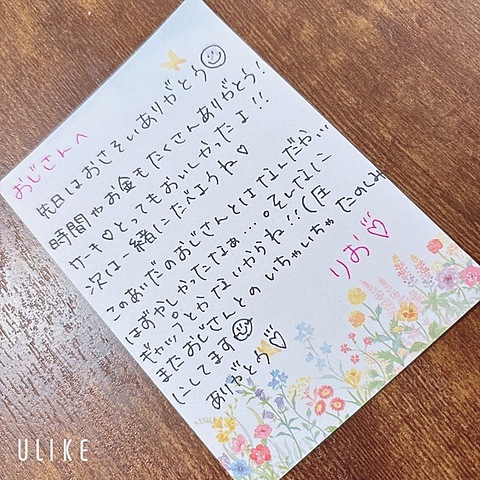 おじさんへ
先日はおさそいありがとう
時間やお金もたくさんありがとう!
ケーキ♡とってもおいしかったよ!!
次は一緒にたべようね♡
このあいだのおじさんとはなんだか…
はずかしかったなぁ…。そんなに
ギャップとかないからね!!(圧
またおじさんとのいちゃいちゃたのしみ
にしてます
ありがとう♡
りお♡
ULIKE